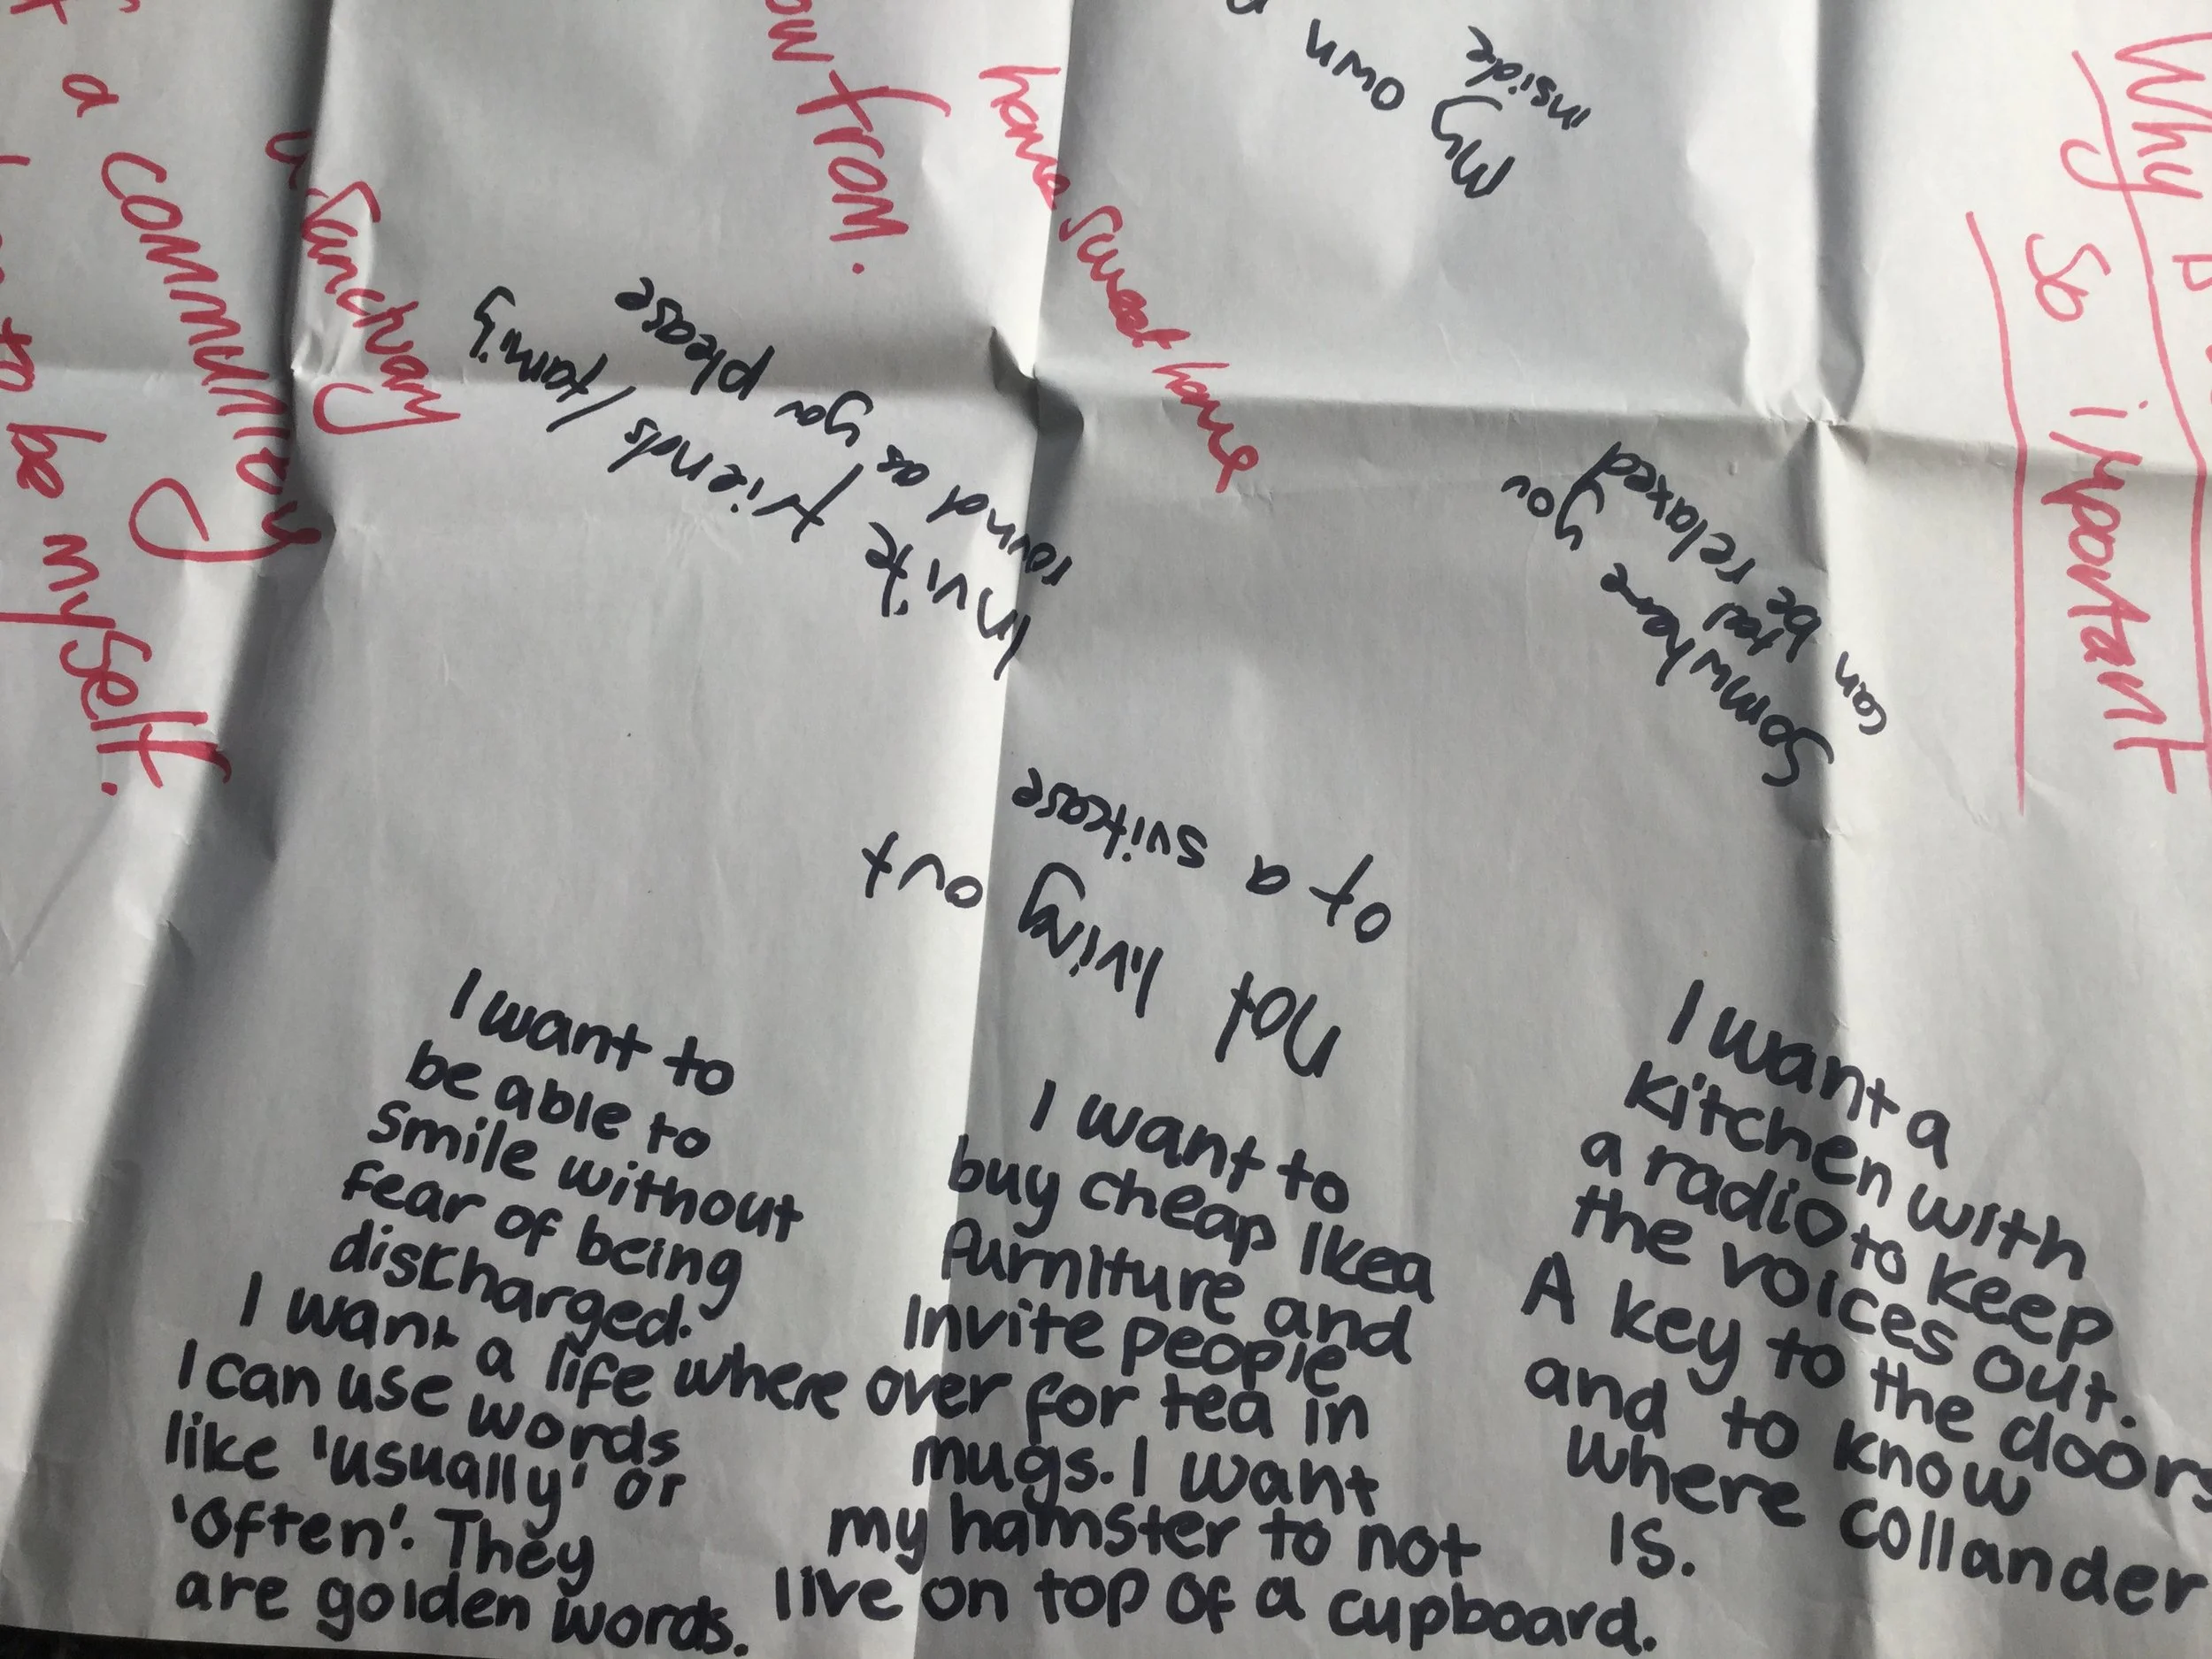 Why is
so important
My own
inside
home sweet home
from.
Sanctuary
a community
to be myself.
Invite friends / family
round as you please
Somwhere you
can feel relaxed
be
Not living out
of a suitcase
I want to
be able to
smile without
fear of being
discharged.
I want a life where
I can use words
like 'usually' or
'often'. They
are golden words.
I want to
buy cheap Ikea
furniture and
invite people
over for tea in
mugs. I want
my hamster to not
live on top of a cupboard.
I want a
kitchen with
a radio to keep
the voices out.
A key to the doors
and to know
where collander
is.